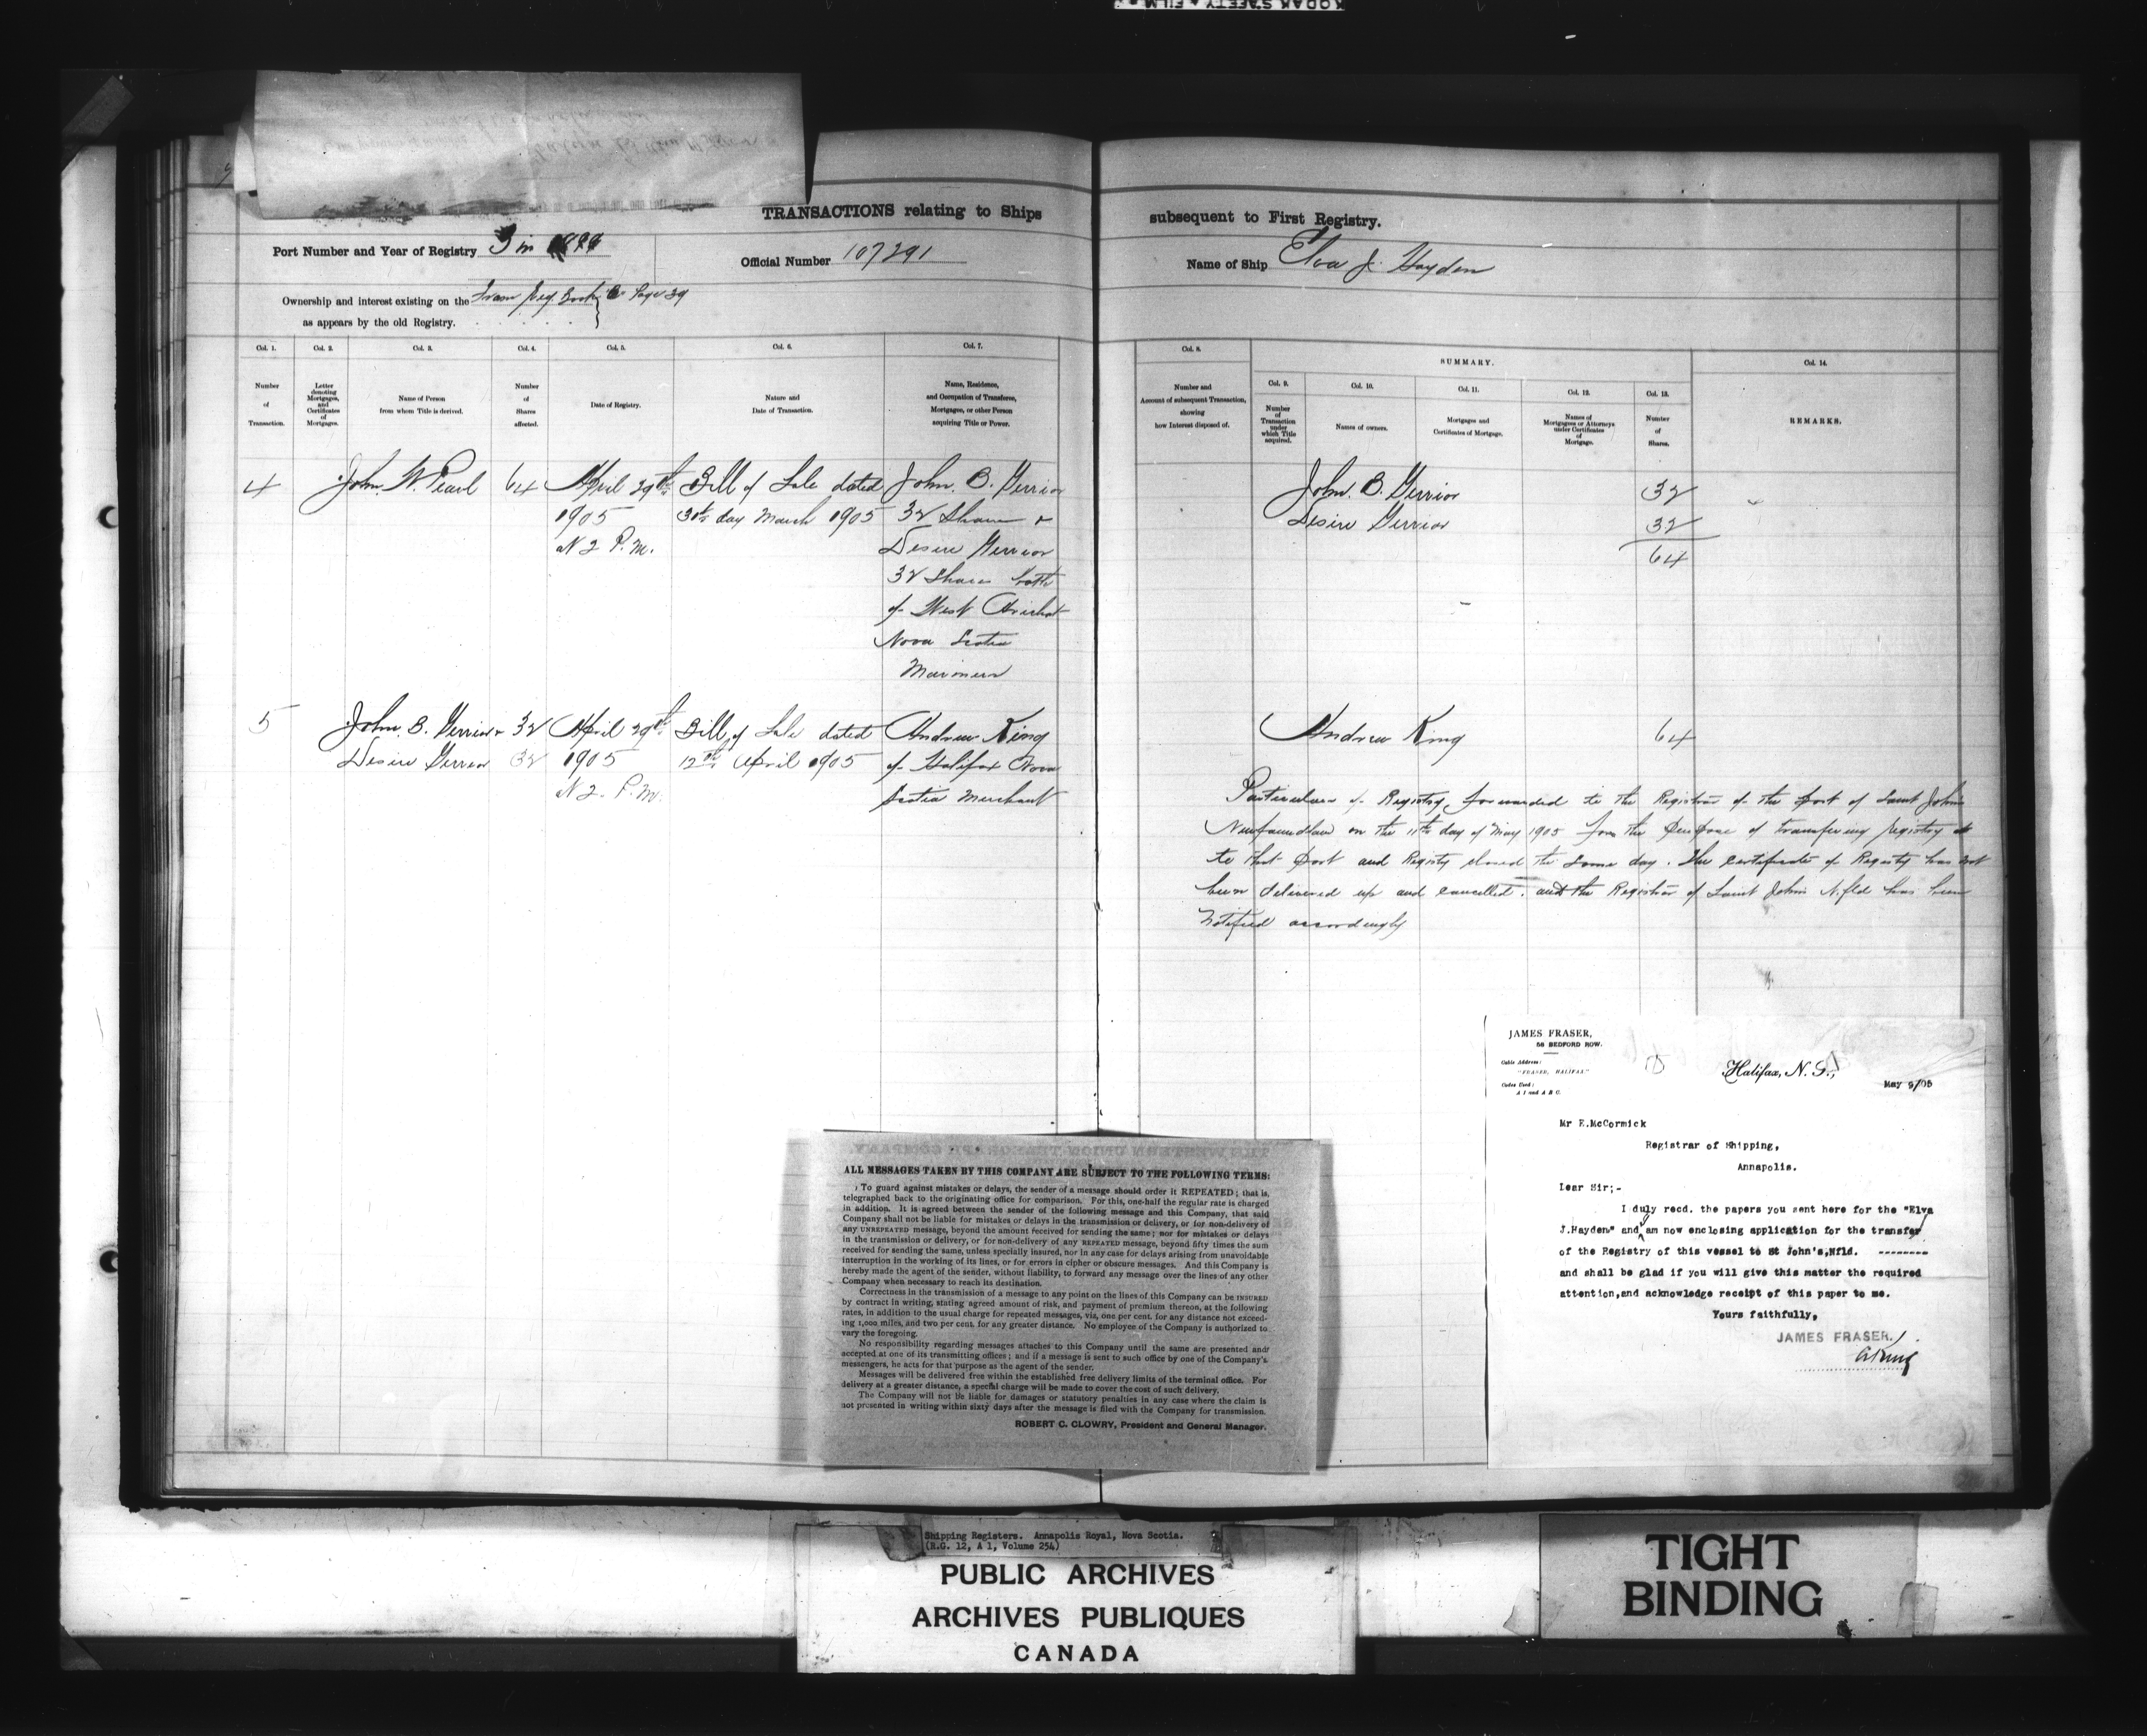 TRANSACTIONS relating to Ships subsequent to First Registry.
Port Number and Year of Registry 3 in
Official Number 107291
Name of Ship Elva J. Hayden
Ownership and interest existing on the From Reg Book Page 39
as appears by the old Registry.
Col. 1.
Number
of
Transaction.
Col. 2.
Letter
denoting
Mortgages,
and
Certificates
of
Mortgages.
Col. 3.
Name of Person
from whom Title is derived.
Col. 4.
Number
of
Shares
affected.
Col. 5.
Date of Registry.
Col. 6.
Nature and
Date of Transaction.
Col. 7.
Name, Residence,
and Occupation of Transferee,
Mortgagee, or other Person
acquiring Title or Power.
Col. 8.
Number and
Account of subsequent Transaction,
showing
how Interest disposed of.
SUMMARY.
Col. 9.
Number
of
Transaction
under
which Title
acquired.
Col. 10.
Names of owners.
Col. 11.
Mortgages and
Certificates of Mortgage.
Col. 12.
Names of
Mortgagees or Attorneys
under Certificates
of
Mortgage.
Col. 13.
Number
of
Shares.
Col. 14.
REMARKS.
4
John. W. Pearl
64
April 29th
1905
at 2 P.M.
Bill of Sale dated
30th day March 1905
John. B. Gerrior
32 Shares +
Desire Gerrior
32 Shares both
of West Arichat
Nova Scotia
Mariners
John. B. Gerrior 32
Desire Gerrior 32
64
5
John. B. Gerrior + 32
Desire Gerrior 32
April 29th
1905
at 2. P.M.
Bill of Sale dated
12th April 1905
Andrew King
of Halifax Nova
Scotia Merchant
Andrew King 64
Particulars of Registry forwarded to the Registrar of the Port of Saint Johns
Newfoundland on the 11th day of May 1905 for the Purpose of transfering registry
to that Port and Registry closed the same day. The Certificate of Registry has not
been delivered up and cancelled. and the Registrar of Saint Johns Nfld has been
notified accordingly
JAMES FRASER,
56 BEDFORD ROW.
Cable Address:
"FRASER, HALIFAX"
Codes Used:
A 1 and A B C.
Halifax, N. S.,
May 9/05
Mr E.McCormick
Registrar of Shipping,
Annapolis.
Dear Sir;-
I duly recd. the papers you sent here for the "Elva
J.Hayden" and am now enclosing application for the transfer
of the Registry of this vessel to St John's,Nfld. --------
and shall be glad if you will give this matter the required
attention,and acknowledge receipt of this paper to me.
Yours faithfully,
JAMES FRASER.
ALL MESSAGES TAKEN BY THIS COMPANY ARE SUBJECT TO THE FOLLOWING TERMS:
To guard against mistakes or delays, the sender of a message should order it REPEATED; that is,
telegraphed back to the originating office for comparison. For this, one-half the regular rate is charged
in addition. It is agreed between the sender of the following message and this Company, that said
Company shall not be liable for mistakes or delays in the transmission or delivery, or for non-delivery of
any UNREPEATED message, beyond the amount received for sending the same; nor for mistakes or delays
in the transmission or delivery, or for non-delivery of any REPEATED message, beyond fifty times the sum
received for sending the same, unless specially insured, nor in any case for delays arising from unavoidable
interruption in the working of its lines, or for errors in cipher or obscure messages. And this Company is
hereby made the agent of the sender, without liability, to forward any message over the lines of any other
Company when necessary to reach its destination.
Correctness in the transmission of a message to any point on the lines of this Company can be INSURED
by contract in writing, stating agreed amount of risk, and payment of premium thereon, at the following
rates, in addition to the usual charge for repeated messages, viz, one per cent. for any distance not exceed-
ing 1,000 miles, and two per cent. for any greater distance. No employee of the Company is authorized to
vary the foregoing.
No responsibility regarding messages attaches to this Company until the same are presented and
accepted at one of its transmitting offices; and if a message is sent to such office by one of the Company's
messengers, he acts for that purpose as the agent of the sender.
Messages will be delivered free within the established free delivery limits of the terminal office. For
delivery at a greater distance, a special charge will be made to cover the cost of such delivery.
The Company will not be liable for damages or statutory penalties in any case where the claim is
not presented in writing within sixty days after the message is filed with the Company for transmission.
ROBERT C. CLOWRY, President and General Manager.
Shipping Registers. Annapolis Royal, Nova Scotia.
(R.G. 12, A 1, Volume 254)
PUBLIC ARCHIVES
ARCHIVES PUBLIQUES
CANADA
TIGHT
BINDING